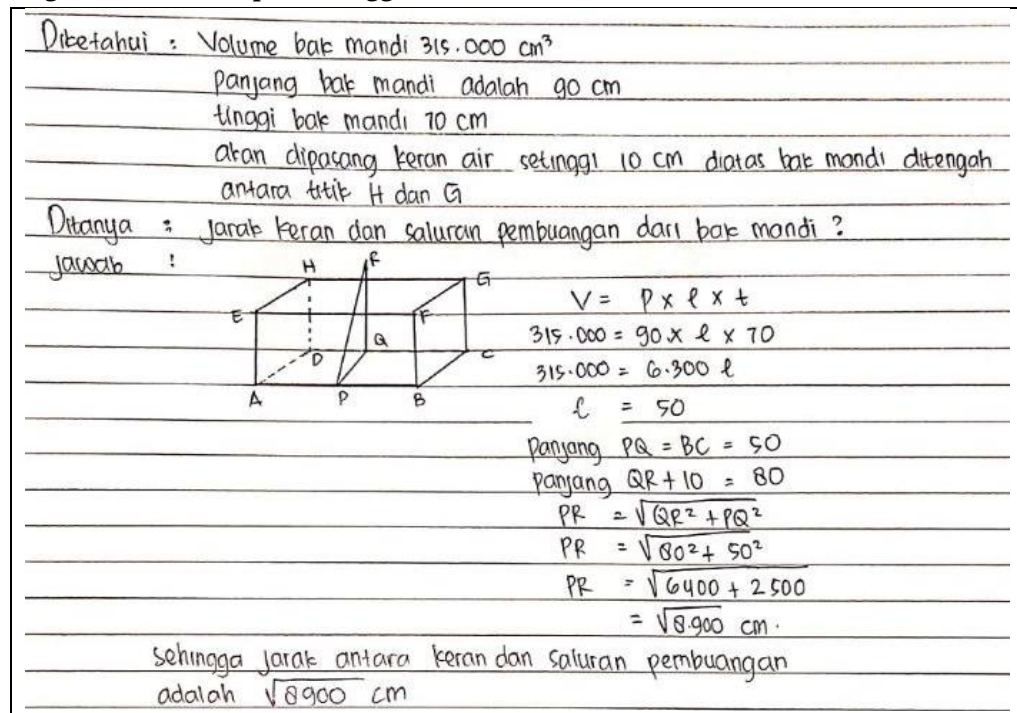 Diketahui : Volume bak mandi 315.000 cm³
panjang bak mandi adalah 90 cm
tinggi bak mandi 70 cm
akan dipasang keran air setinggi 10 cm diatas bak mandi ditengah
antara titik H dan G
Ditanya : jarak keran dan saluran pembuangan dari bak mandi ?
jawab :
H R G
E F
D Q C
A P B
V = P x l x t
315.000 = 90 x l x 70
315.000 = 6.300 l
l = 50
panjang PQ = BC = 50
panjang QR + 10 = 80
PR = √QR² + PQ²
PR = √80² + 50²
PR = √6400 + 2500
= √8.900 cm.
sehingga jarak antara keran dan saluran pembuangan
adalah √8900 cm